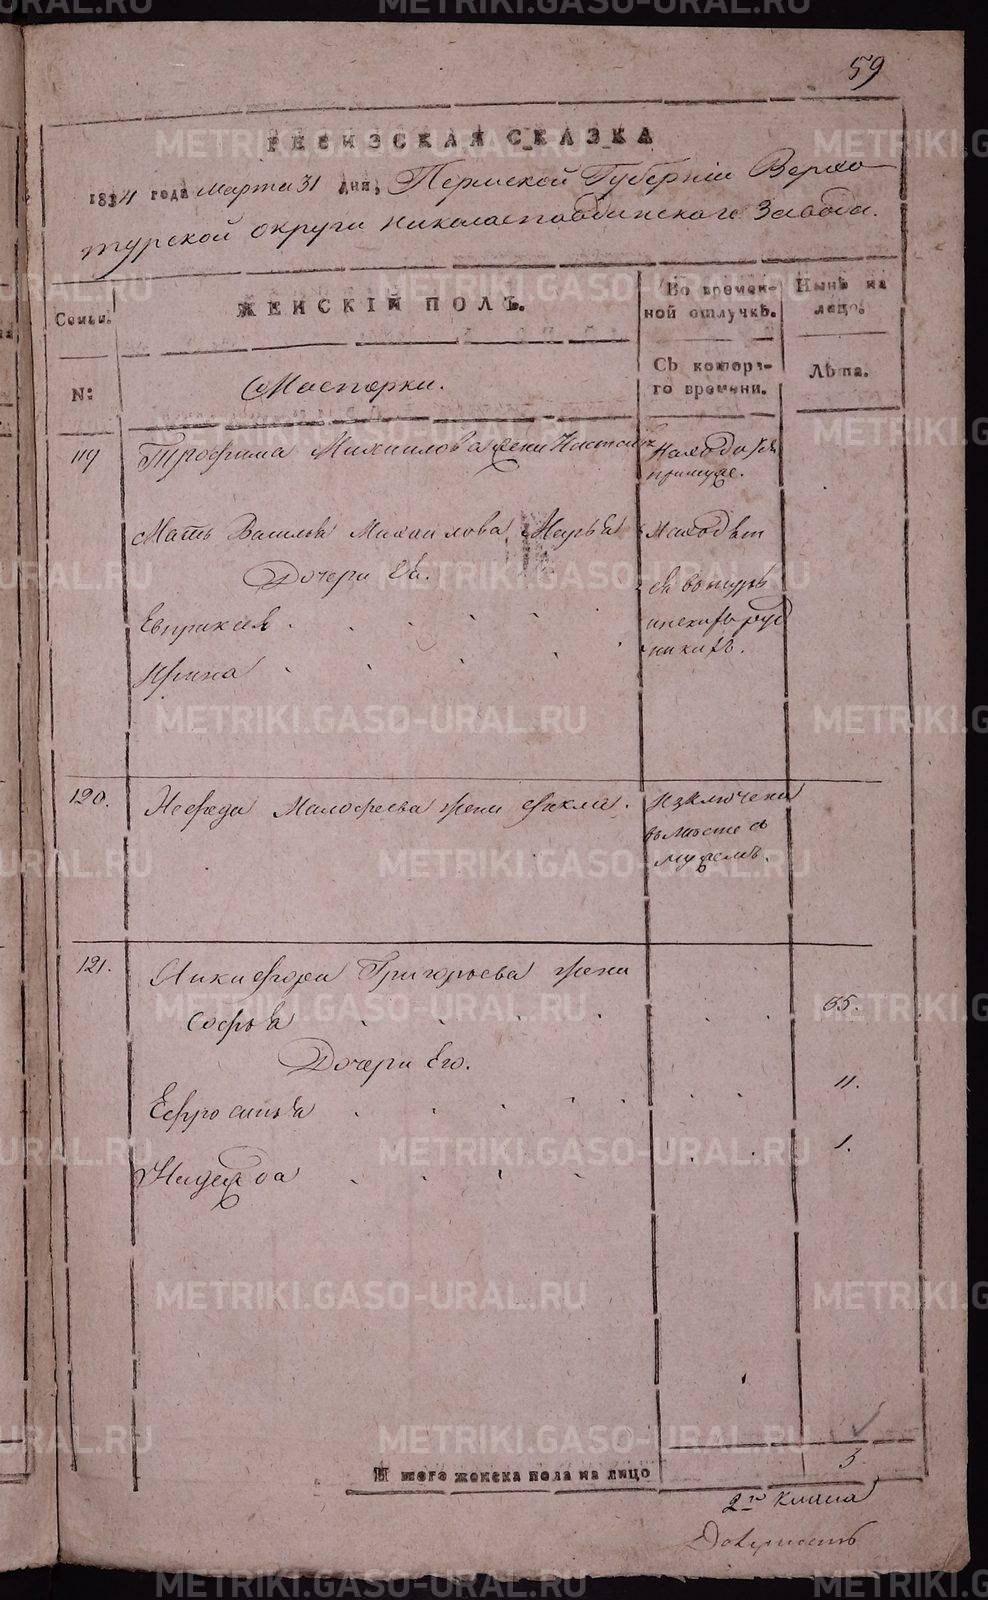 59
РЕВИЗСКАЯ СКАЗКА
1834 года марта 31 дня, Пермской Губерніи Верхо-
турской округи Николаепавдинскаго Завода.
Семьи.
ЖЕНСКІЙ ПОЛЪ.
Во времен-
ной отлучкѣ.
Нынѣ на
лицо.
N:
Мастерки.
Съ котора-
го времени.
Лѣта.
119
Трофима Михаилова жена Настасья
Находится
примуже.
Мать Василья Михаилова, Марья
Находят
Дочери Еа.
ся
Евпраксея
Ирина
никахъ.
120.
Нефеда Малофеева жена Фекла.
Изключена
вместе съ
мужемъ.
121.
Никифора Григорьева жена
Софья
35.
Дочери Его.
Ефросинья
11.
Надежда
1.
Итого женска пола на лицо
3
METRIKI.GASO-URAL.RU